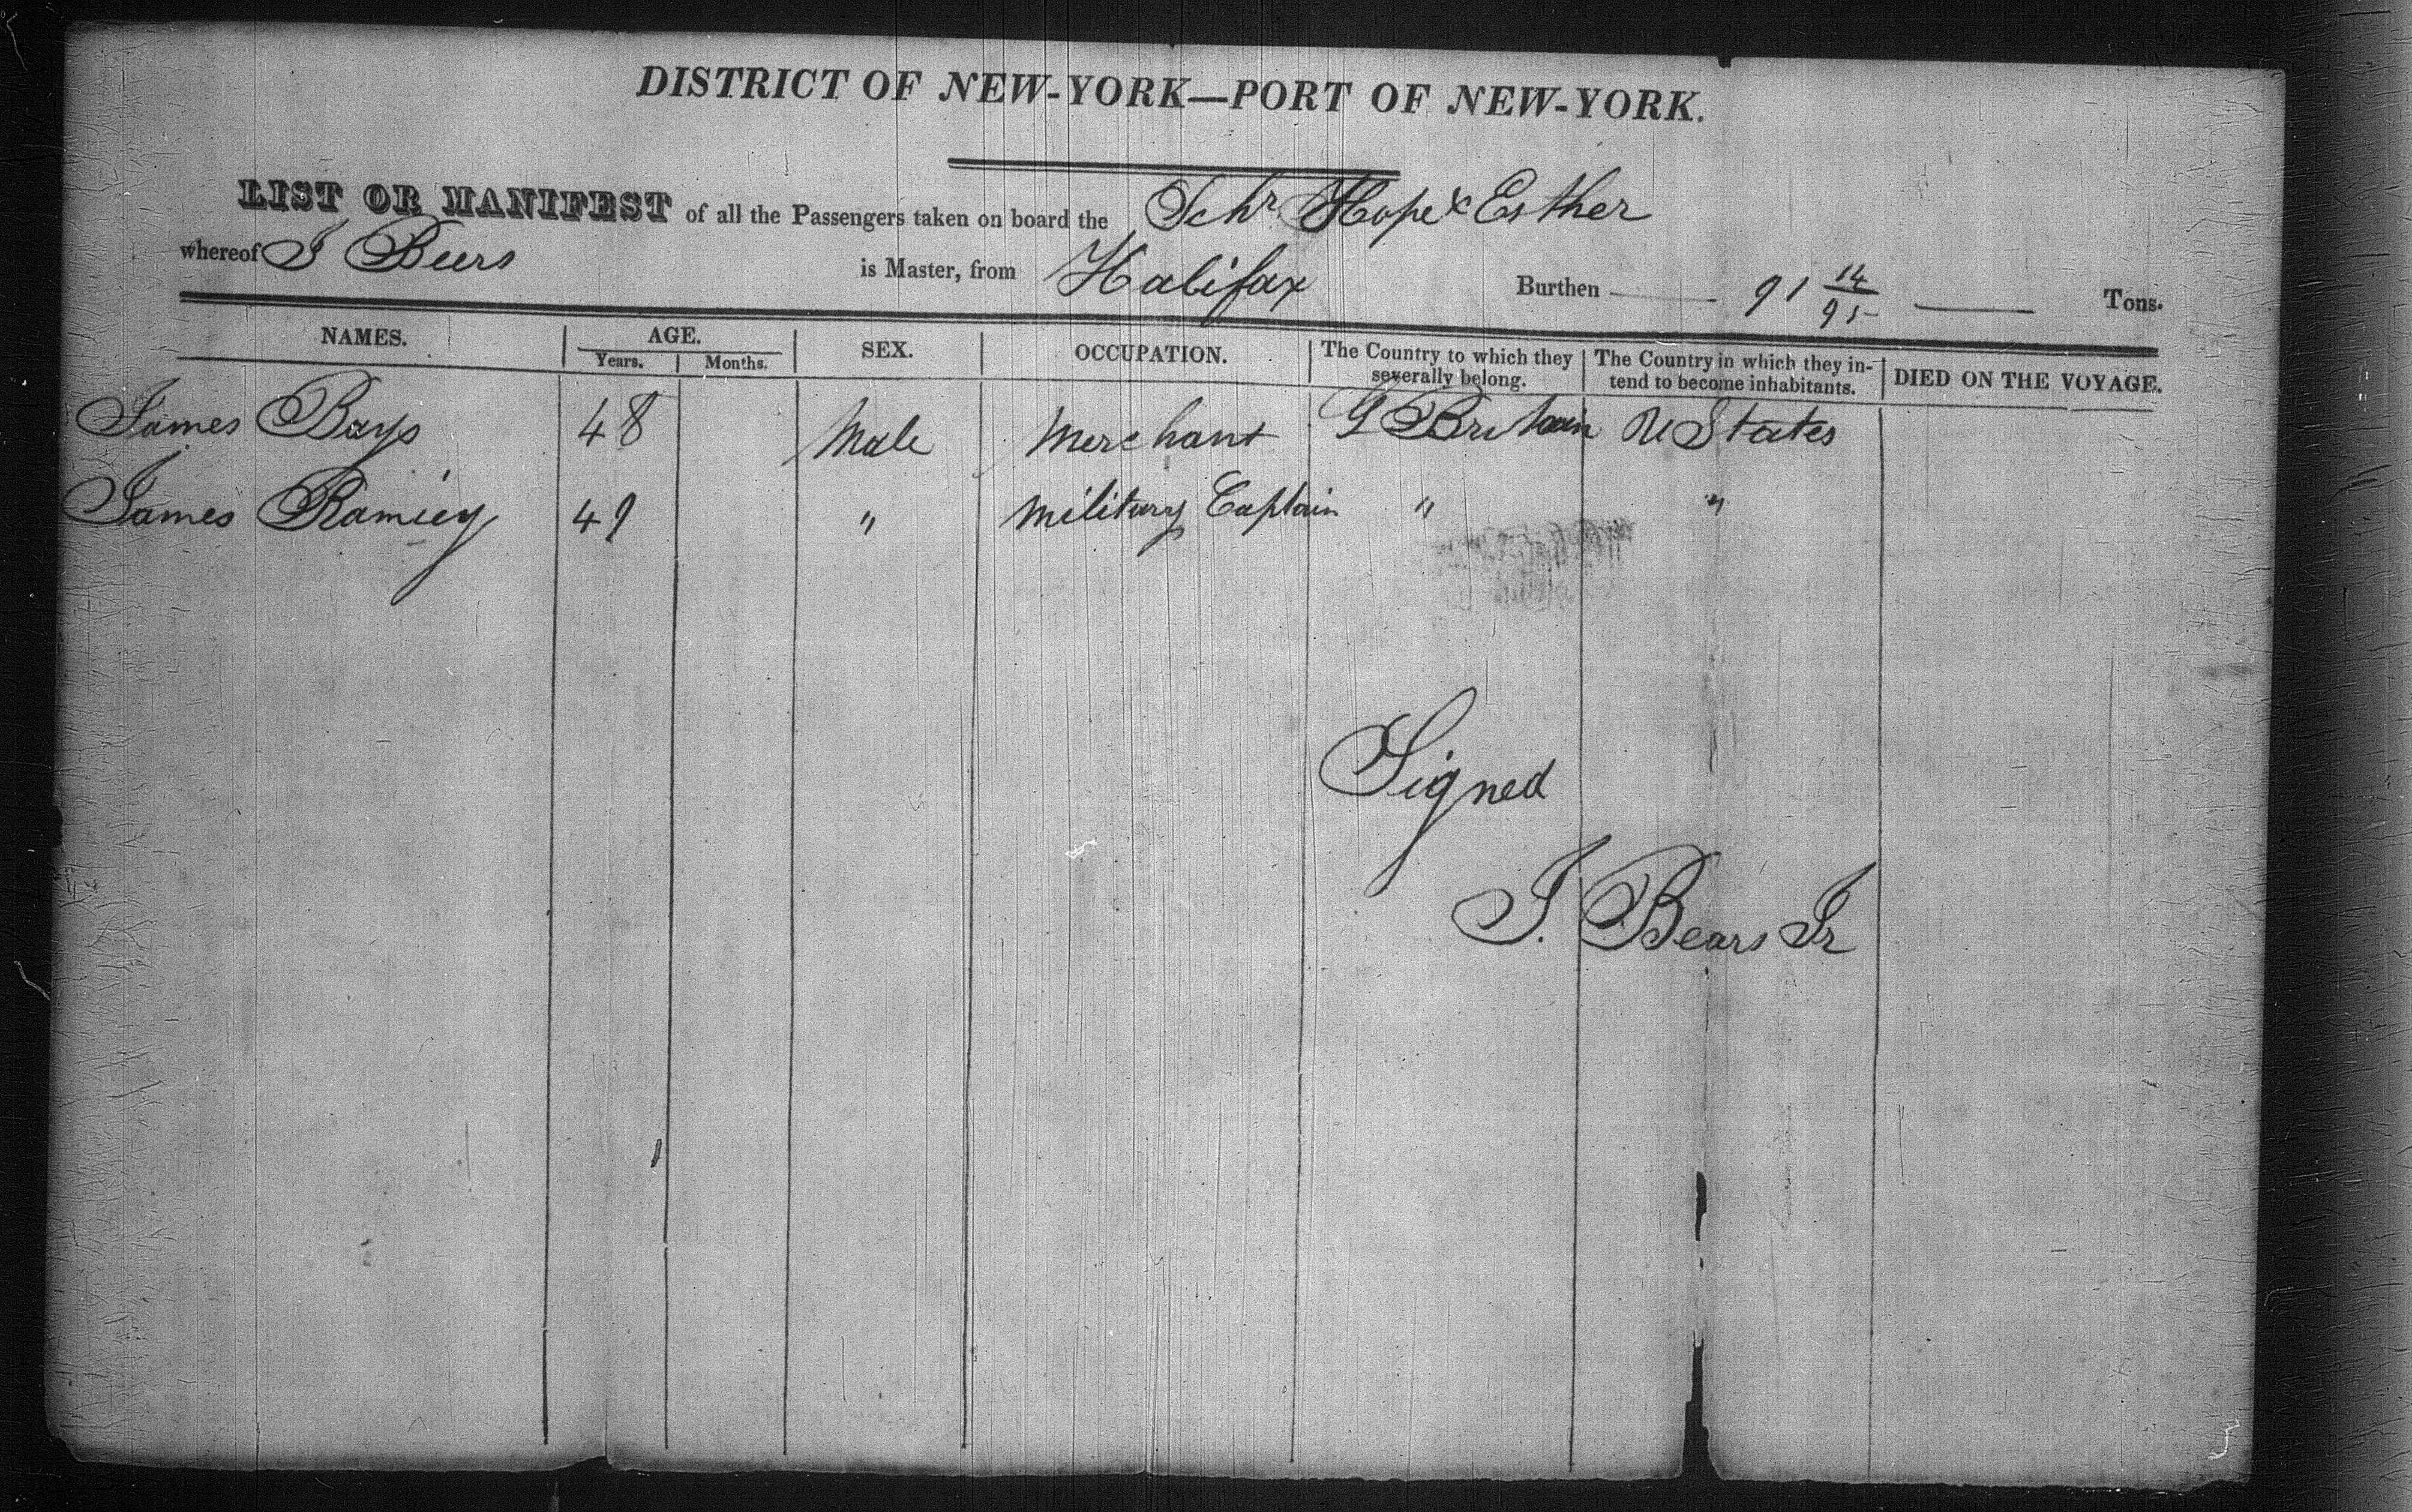 DISTRICT OF NEW-YORK—PORT OF NEW-YORK.
LIST OR MANIFEST of all the Passengers taken on board the Schr Hope & Esther
whereof J Beers is Master, from Halifax Burthen 91 14/95 Tons.
NAMES. AGE. SEX. OCCUPATION. The Country to which they severally belong. The Country in which they intend to become inhabitants. DIED ON THE VOYAGE.
Years. Months.
James Bays 48 Male Merchant G Britain U States
James Ramsey 49 " Military Captain " "
Signed
J. Bears Jr